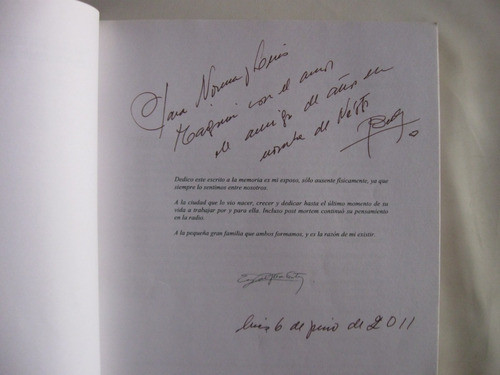 Para Norma y Luis
con el amor
de amigo de años en
nombre de
Dedico este escrito a la memoria es mi esposo, sólo ausente físicamente, ya que
siempre lo sentimos entre nosotros.
A la ciudad que lo vio nacer, crecer y dedicar hasta el último momento de su
vida a trabajar por y para ella. Incluso post mortem continuó su pensamiento
en la radio.
A la pequeña gran familia que ambos formamos, y es la razón de mi existir.
6 de junio de 2011